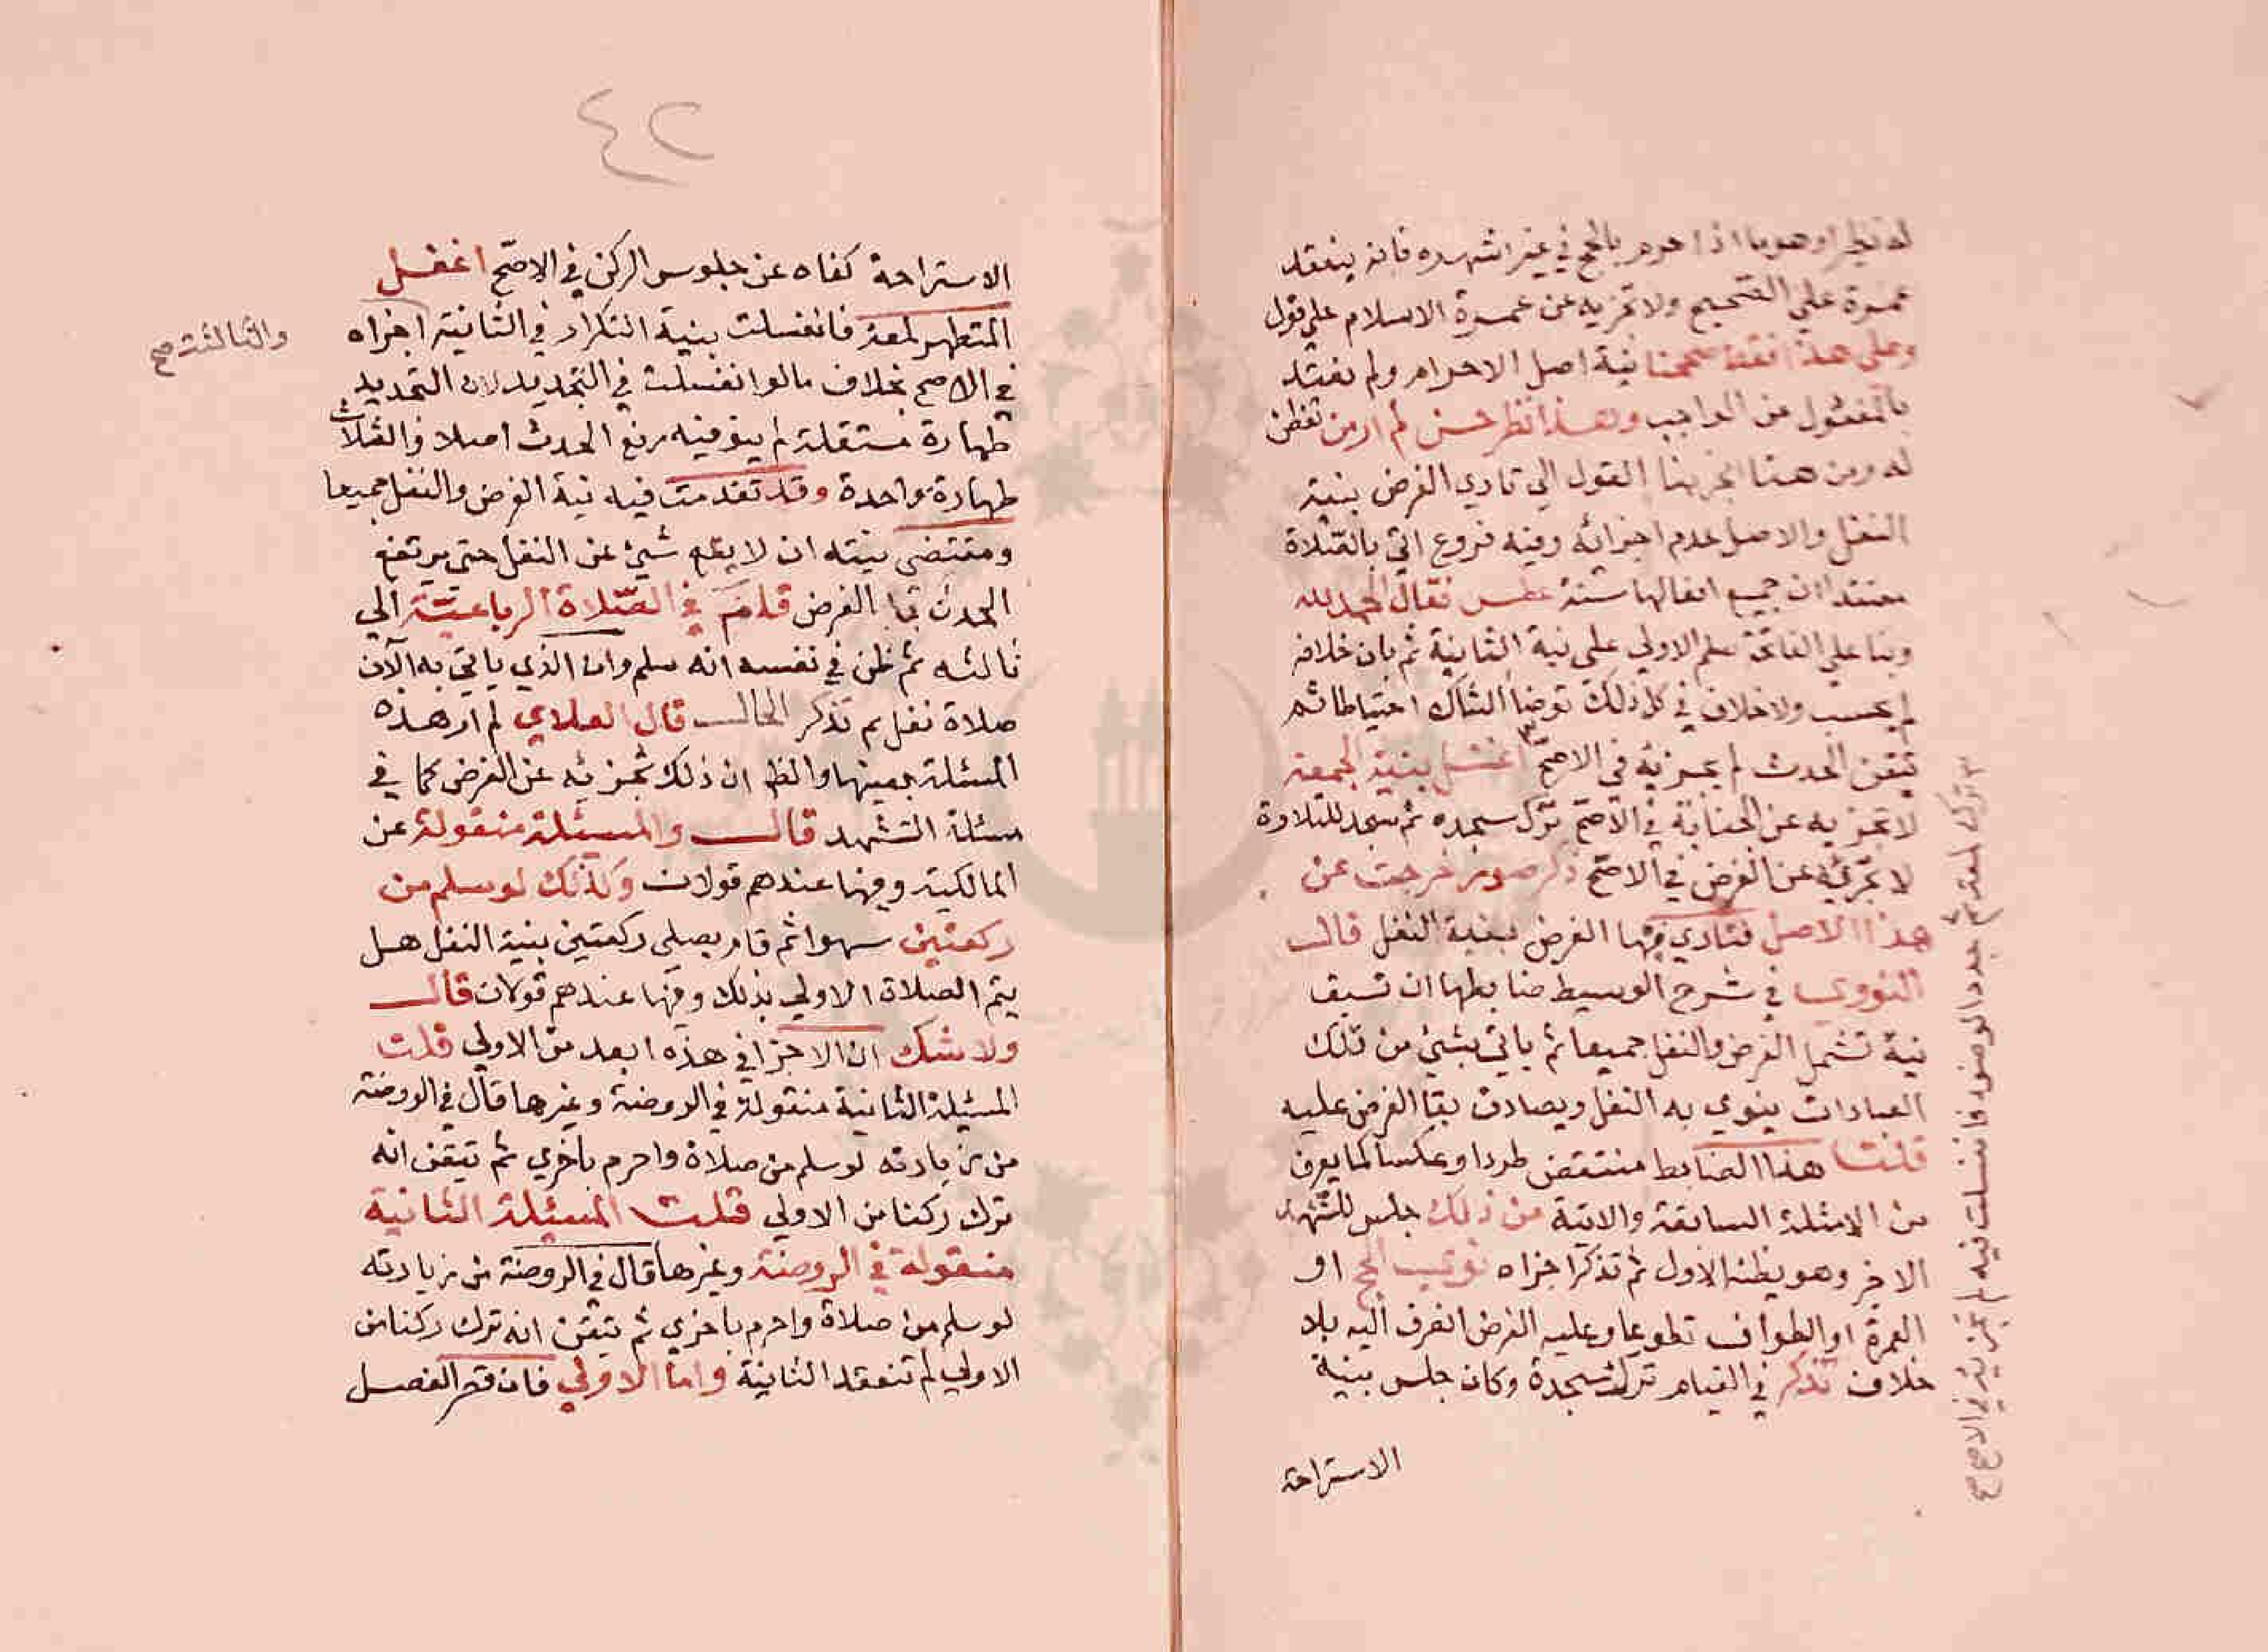 له نظيرا وهو ما اذا احرم بالحج في غير اشهره فانه ينعقد
عمرة علي الصحيح ولا تجزيه عن عمرة الاسلام علي قول
وعلي هذا فقط صححنا نية اصل الاحرام ولم يعتد
بالمفعول عن الواجب وهذا نظر حسن لم ار من تفطن
له ومن هنا انجر بنا القول الي تادي الفرض بنية
النفل والاصل عدم اجزائه وفيه فروع اتي بالصّلاة
معتقدا ان جميع افعالها سنة عطس فقال الحمد لله
وبنا علي الفاتحة سلم الاولي علي نية الثانية ثم بان خلافه
لم يحسب ولا خلاف في كل ذلك توضا الشاك احتياطا ثم
تيقن الحدث لم يجزيه في الاصح ٣ اغتسل بنية الجمعة
لا تجزيه عن الجنابة في الاصح ترك سجده ثم سجد للتلاوة
لا تجزئه عن الفرض في الاصح ذكر صور خرجت عن
هذا الاصل فتادي فيها الفرض بنية النفل قال
النووي في شرح الوسيط ضابطها ان تسبق
نية تشمل الفرض والنفل جميعا ثم ياتي بشيئ من تلك
العبادات ينوي به النفل ويصادف بقا الفرض عليه
قلت هذا الضابط منتقض طردا وعكسا كما يعرف
من الامثلة السابقة والاتية من ذلك جلس للتشهد
الاخر وهو يظنه الاول ثم تذكر اجزاه نوي الحج او
العمرة او الطواف تطوعا وعليه الفرض انصرف اليه بلا
خلاف تذكر في القيام ترك سجدة وكان جلس بنية
الاستراحة
٣ ترك لمعة ثم جدد الوضوء فانغسلت فيه لم تجزيه في الاصح صح
٤٢
الاستراحة كفاه عن جلوس الركن في الاصّح اغفل
المتطهر لمعة فانغسلت بنية التكرار في الثانية اجزاه
والثالثة صح
في الاصح بخلاف ما لو انغسلت في التجديد لان التجديد
طهارة مستقلة لم ينو فيه رفع الحدث اصلا والثلاث
طهارة واحدة وقد تقدمت فيه نية الفرض والنفل جميعا
ومقتضي نيته ان لا يقع شيئ عن النفل حتي يرتفع
الحدث بالفرض قام في الصّلاة الرباعيّة الي
ثالثه ثم ظن في نفسه انه سلم وان الذي ياتي به الآن
صلاة نفل ثم تذكر الحال قال العلاي لم ار هذه
المسئلة بعينها والظ ان ذلك تجزيه عن الفرض كما في
مسئلة التشهد قال والمسئلة منقولة عن
المالكية وفيها عندهم قولان وكذلك لو سلم من
ركعتين سهوا ثم قام يصلي ركعتين بنية النفل هل
يتم الصلاة الاولي بذلك وفيها عندهم قولان قال
ولا شك ان الاجزا في هذه ابعد من الاولي قلت
المسئلة الثانية منقولة في الروضة وغيرها قال في الروضة
من زيادته لو سلم من صلاة واحرم باخري ثم تيقن انه
ترك ركنا من الاولي قلت المسئلة الثانية
منقولة في الروضة وغيرها قال في الروضة من زيادته
لو سلم من صلاة واحرم باخري ثم تيقن انه ترك ركنا من
الاولي لم تنعقد الثانية واما الاولي فان قصر الفصل